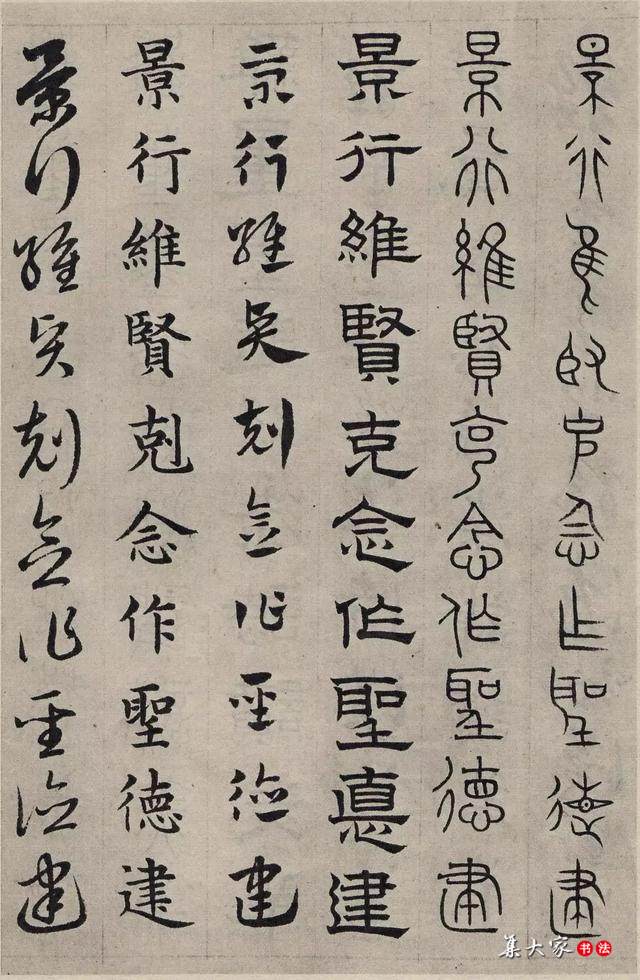 景行維賢克念作聖德建
景行維賢克念作聖德建
景行維賢克念作聖悳建
景行維賢剋念作聖德建
景行維賢剋念作聖德建
景行維賢剋念作聖德建
集大家 书法